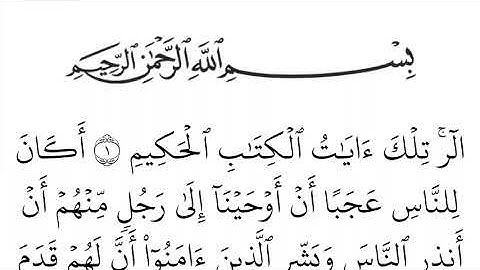 بِسْمِ ٱللَّهِ ٱلرَّحْمَٰنِ ٱلرَّحِيمِ
الٓرۚ تِلْكَ ءَايَٰتُ ٱلْكِتَٰبِ ٱلْحَكِيمِ ١ أَكَانَ
لِلنَّاسِ عَجَبًا أَنْ أَوْحَيْنَآ إِلَىٰ رَجُلٖ مِّنْهُمْ أَنْ
أَنذِرِ ٱلنَّاسَ وَبَشِّرِ ٱلَّذِينَ ءَامَنُوٓاْ أَنَّ لَهُمْ قَدَمَ